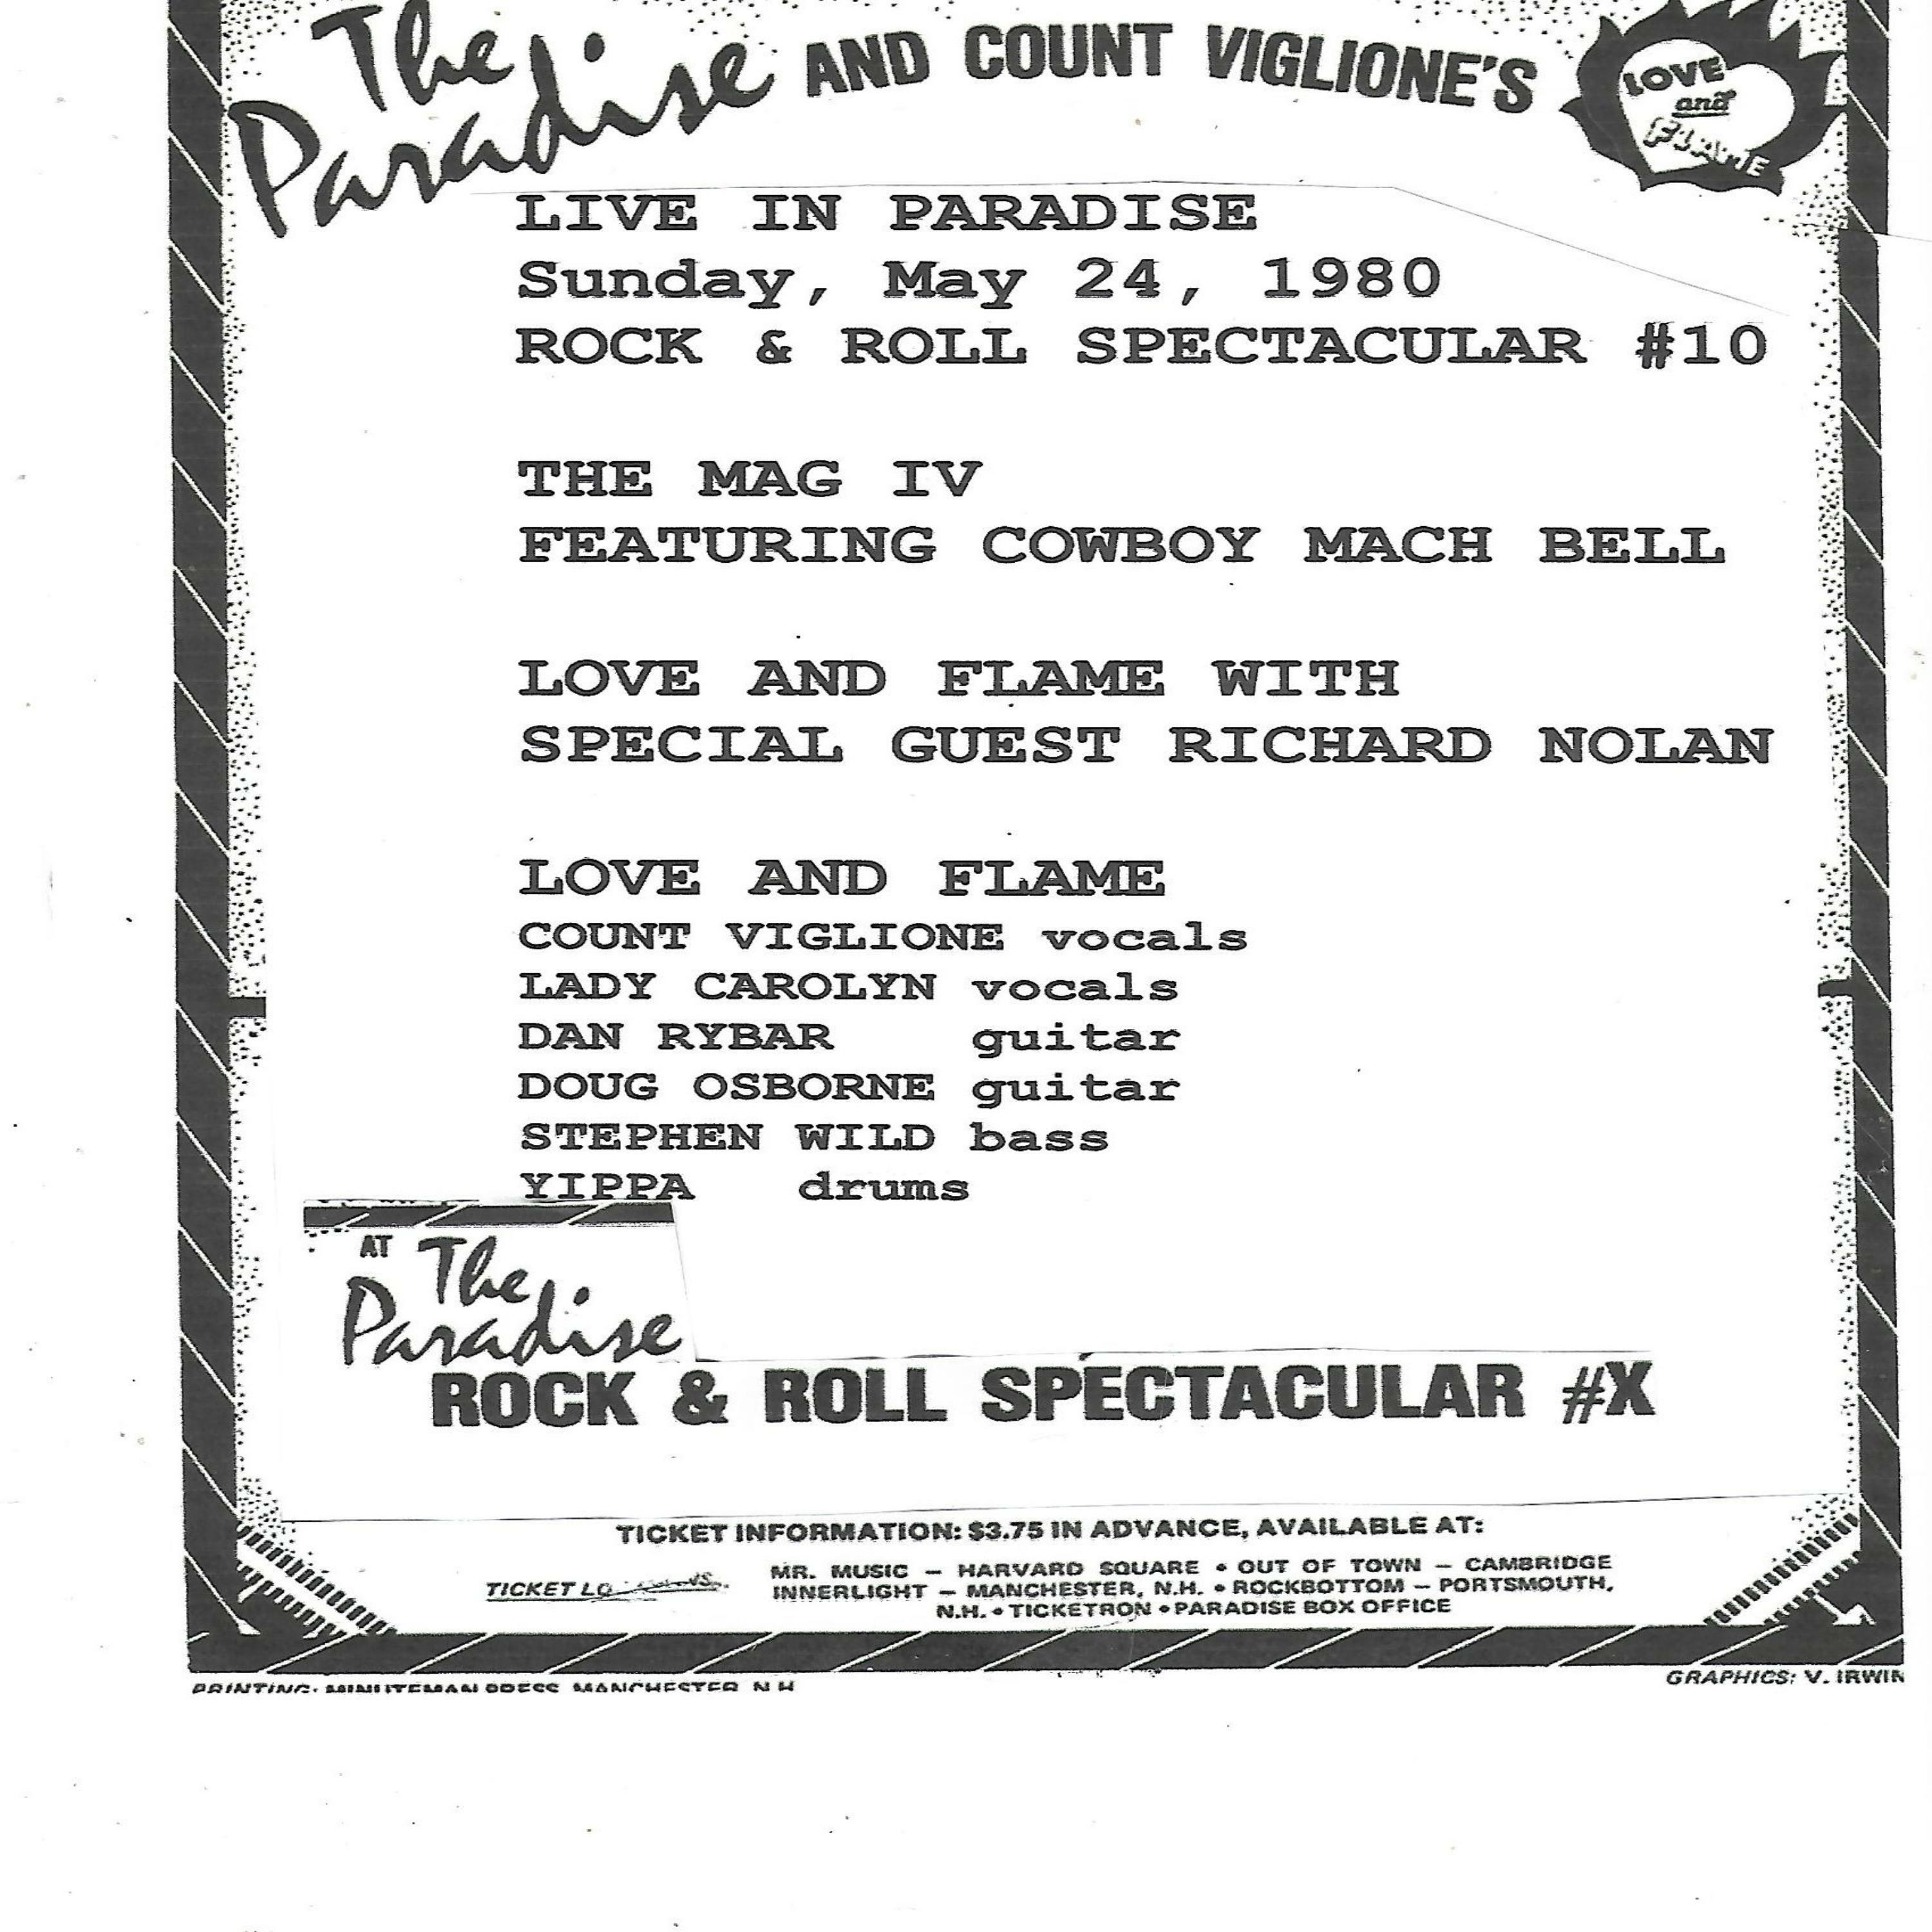 The Paradise AND COUNT VIGLIONE'S
LOVE and FLAME
LIVE IN PARADISE
Sunday, May 24, 1980
ROCK & ROLL SPECTACULAR #10
THE MAG IV
FEATURING COWBOY MACH BELL
LOVE AND FLAME WITH
SPECIAL GUEST RICHARD NOLAN
LOVE AND FLAME
COUNT VIGLIONE vocals
LADY CAROLYN vocals
DAN RYBAR guitar
DOUG OSBORNE guitar
STEPHEN WILD bass
YIPPA drums
AT The
Paradise
ROCK & ROLL SPECTACULAR #X
TICKET INFORMATION: $3.75 IN ADVANCE, AVAILABLE AT:
TICKET
MR. MUSIC – HARVARD SQUARE • OUT OF TOWN – CAMBRIDGE
INNERLIGHT – MANCHESTER, N.H. • ROCKBOTTOM – PORTSMOUTH,
N.H. • TICKETRON • PARADISE BOX OFFICE
PRINTING: MINUTEMAN PRESS MANCHESTER N.H
GRAPHICS: V. IRWIN